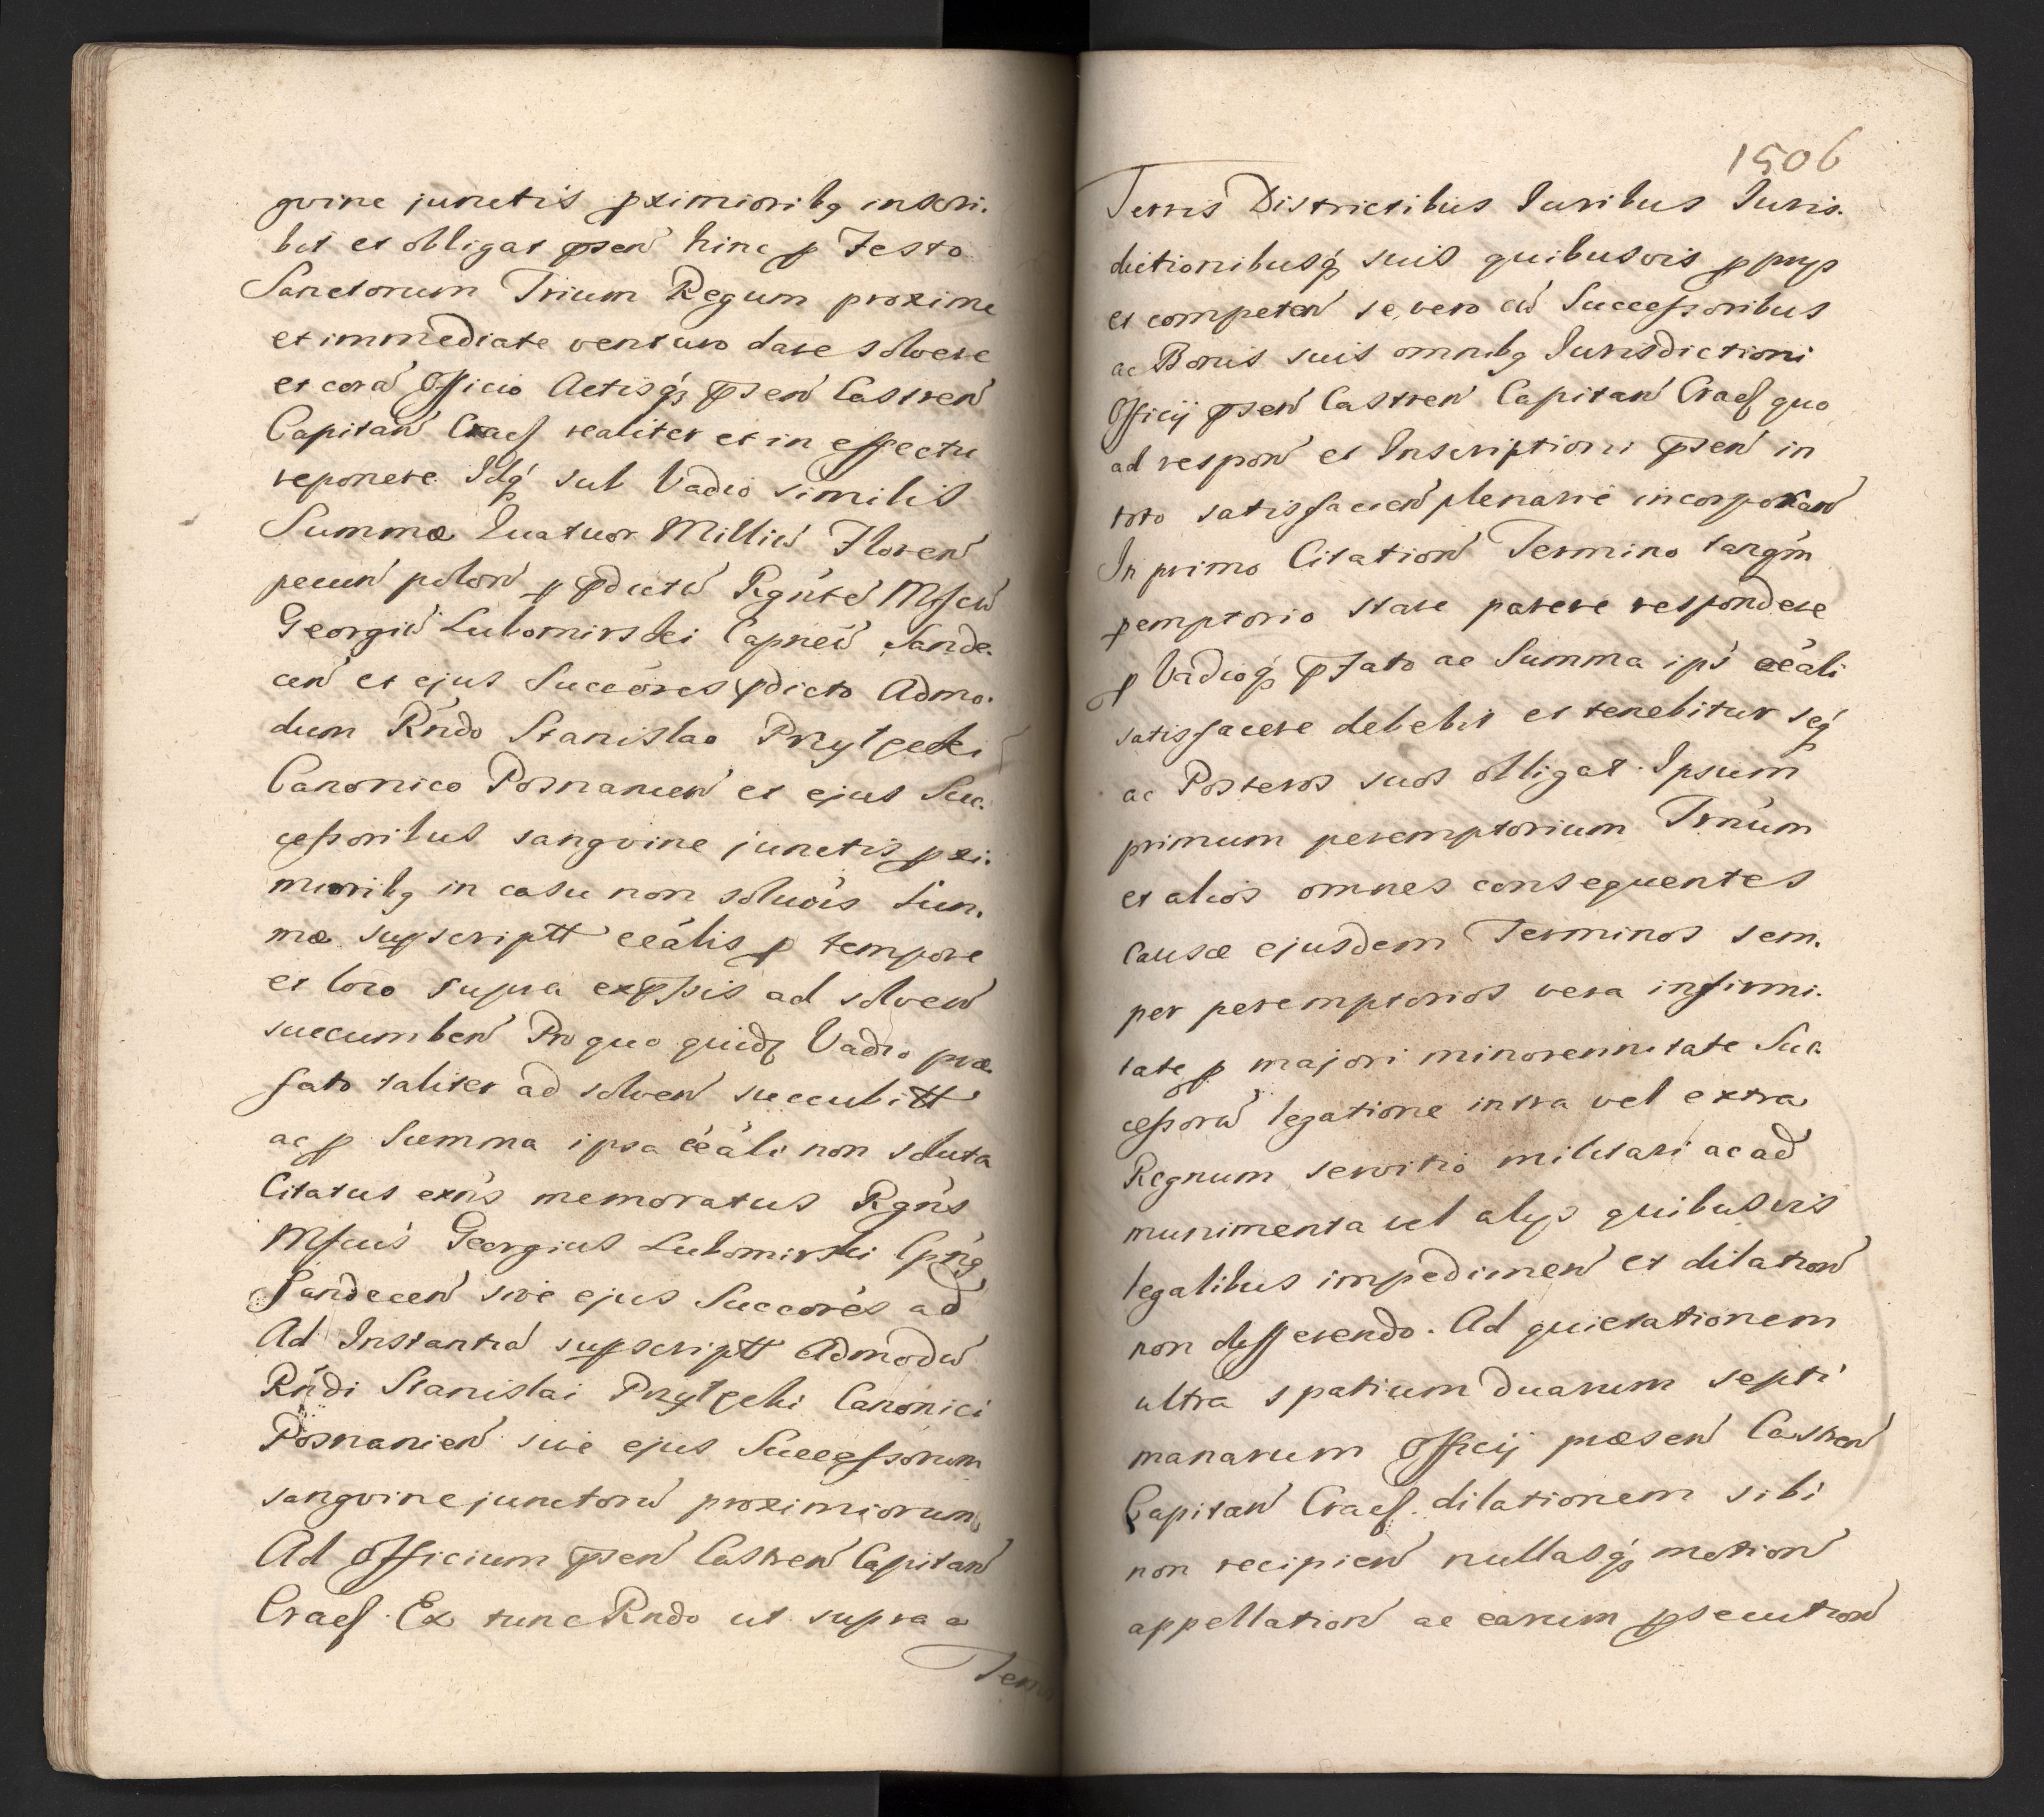 gvine junctis pximioribq inscri.
bit et obligat psen hinc p Festo
Sanctorum Trium Regum proxime
et immediate venturo dare solvere
et cora Officio Actisq psen Castren
Capitan Cracs realiter et in effectu
reponere Idq sub Vadio similis
Summæ Quatuor Milliu Floren
pecun polon p pdictu Rgnte Mfcu
Georgiu Lubomirski Capneu Sande.
cen et ejus Succores pdicto Admo.
dum Rndo Stanislao Przyłęcki
Canonico Posnanien et ejus Suc.
cessoribus sangvine junctis pxi.
mioribq in casu non soluois Sum.
mæ supscriptt ceális p tempore
et loco supra expssis ad solven
succumben Pro quo quidē Vadio præ
fato taliter ad solven succubitt
ac p Summa ipsa ceáli non soluta
Citatus exns memoratus Rgns
Mfcus Georgius Lubomirski Cpnq
Sandecen sive ejus Succorés ad
Ad Instantia supscriptt Admodu
Rndi Stanislai Przyłęcki Canonici
Posnanien sive ejus Successorum
sangvine junctoru proximiorum
Ad Officium psen Castren Capitan
Cracs. Ex tunc Rndo ut supra a
Terris
1506
Terris Districtibus Juribus Juris.
dictionibusq suis quibusvis p prys
et competen se vero cu Successoribus
ac Bonis suis omnibq Jurisdictioni
Officij psen Castren Capitan Cracs quo
ad respon et Inscriptioni psen in
toto satisfacien plenarie incorporan
In primo Citation Termino tanqm
pemptorio stare parere respondere
p Vadioq pfato ac Summa ips ceáli
satisfacere debebit et tenebitur seq
ac Posteros suos obligat. Ipsum
primum peremptorium Trnum
et alios omnes consequentes
Causæ ejusdem Terminos sem.
per peremptorios vera infirmi.
tate p majori minorennitate Suc.
cessoru legatione intra vel extra
Regnum servitio militari ac ad
munimenta vel alys quibusvis
legalibus impedimen et dilation
non differendo. Ad quietationem
ultra spatium duarum septi
manarum Officij præsen Castren
Capitan Cracs. dilationem sibi
non recipien nullasq motion
appellation ac earum psecution